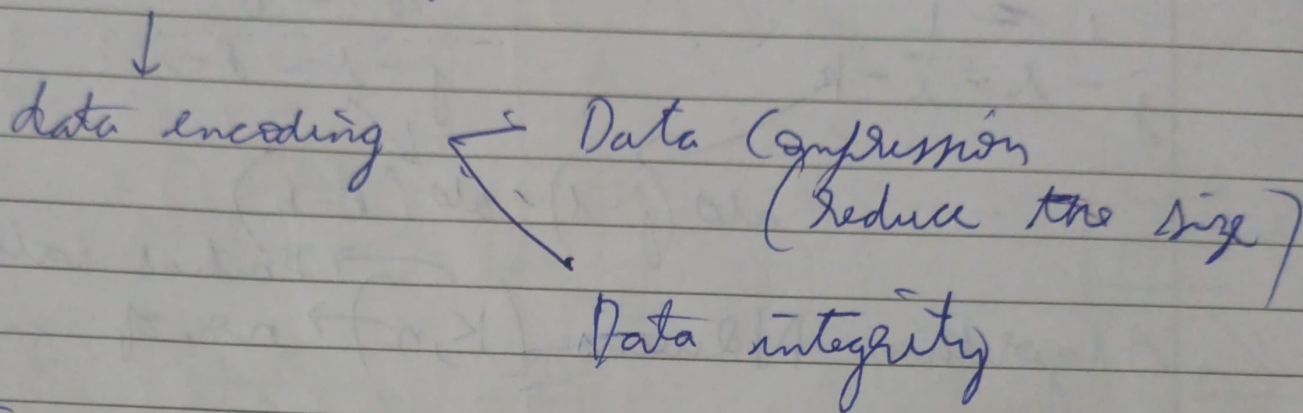 data encoding Data Compression
(reduce the size)
Data integrity